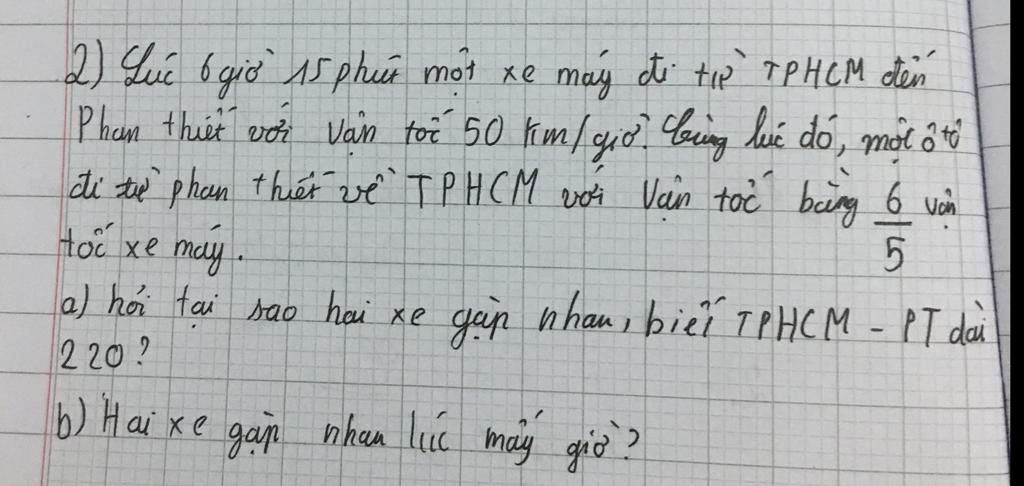 2) Lúc 6 giờ 15 phút một xe máy đi từ TPHCM đến
Phan thiết với vận tốc 50 km/giờ. Cùng lúc đó, một ô tô
đi từ phan thiết về TPHCM với vận tốc bằng 6/5 vận
tốc xe máy.
a) hỏi tại sao hai xe gặp nhau, biết TPHCM - PT dài
220?
b) Hai xe gặp nhau lúc mấy giờ?